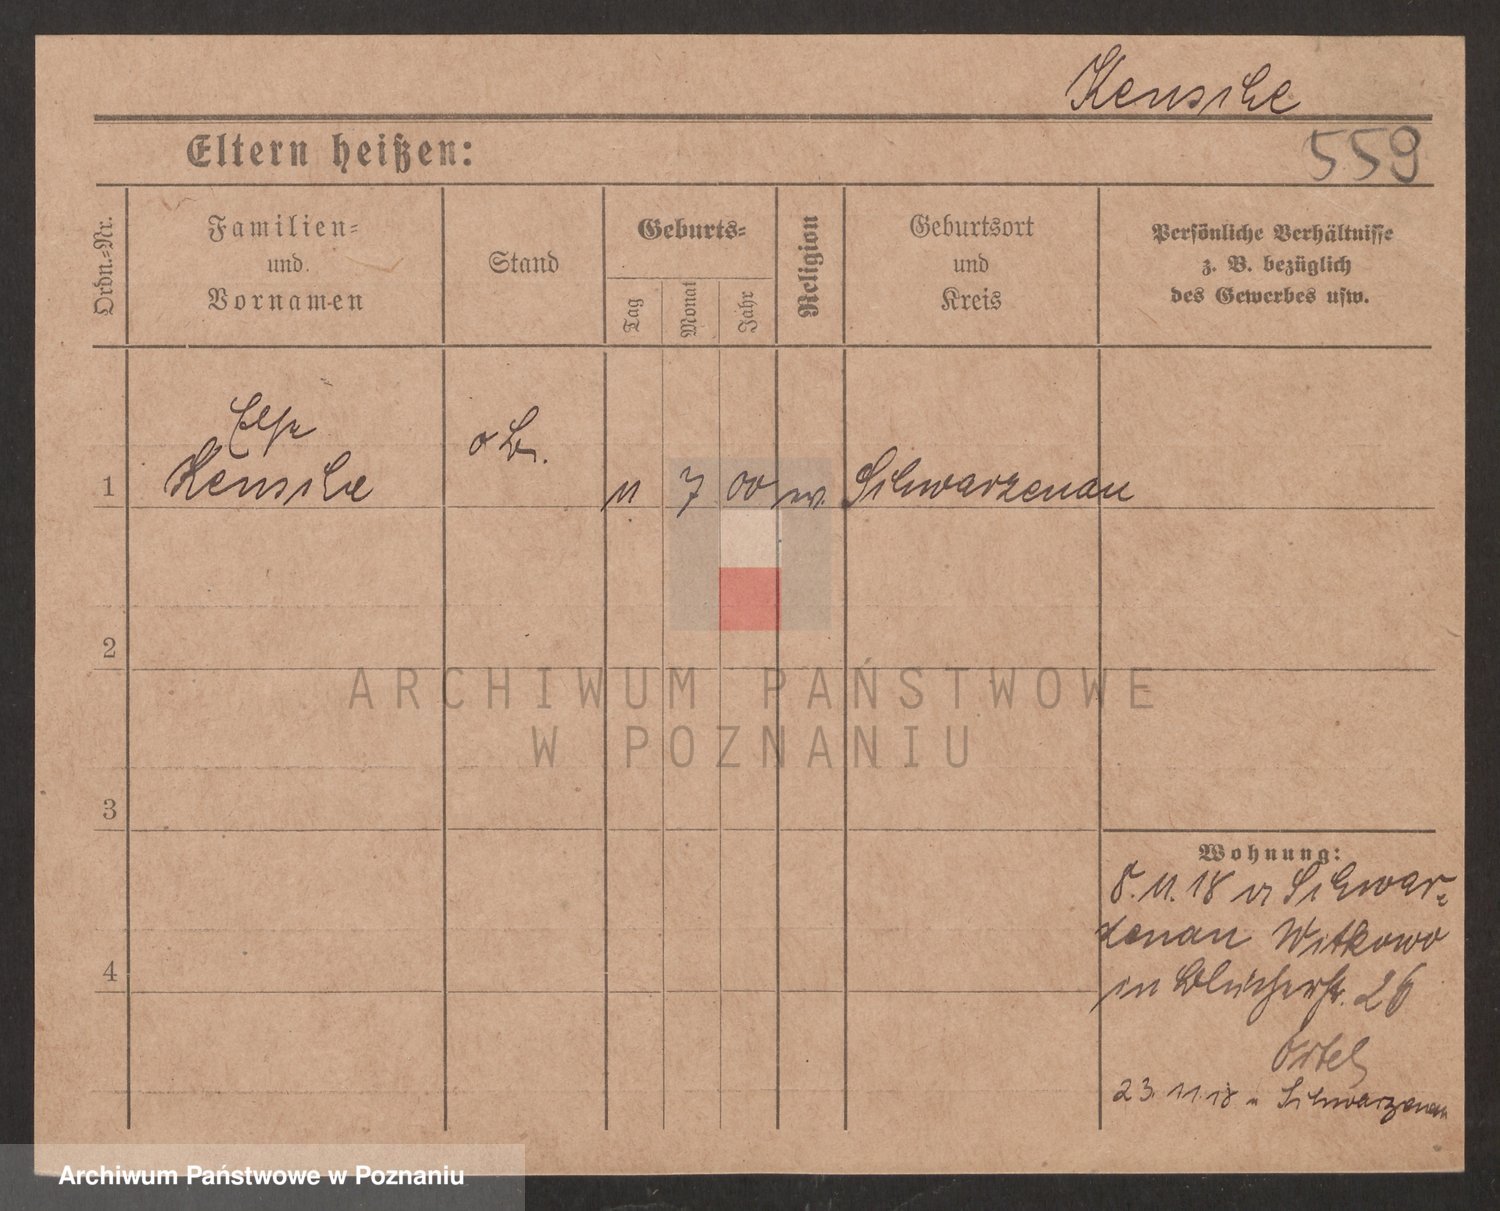 Kensche
Eltern heißen:
559
Ordn.-Nr.
Familien-
und
Vornamen
Stand
Geburts-
Tag
Monat
Jahr
Religion
Geburtsort
und
Kreis
Persönliche Verhältnisse
z. B. bezüglich
des Gewerbes usw.
Else
Kensche
o B.
1
11 7 00 ev. Schwarzenau
2
ARCHIWUM PAŃSTWOWE
W POZNANIU
3
Wohnung:
8. 11. 18 v Schwar-
zenau Witkowo
in Blücherstr. 26
Örtel
23. 11. 18 n Schwarzenau
4
Archiwum Państwowe w Poznaniu